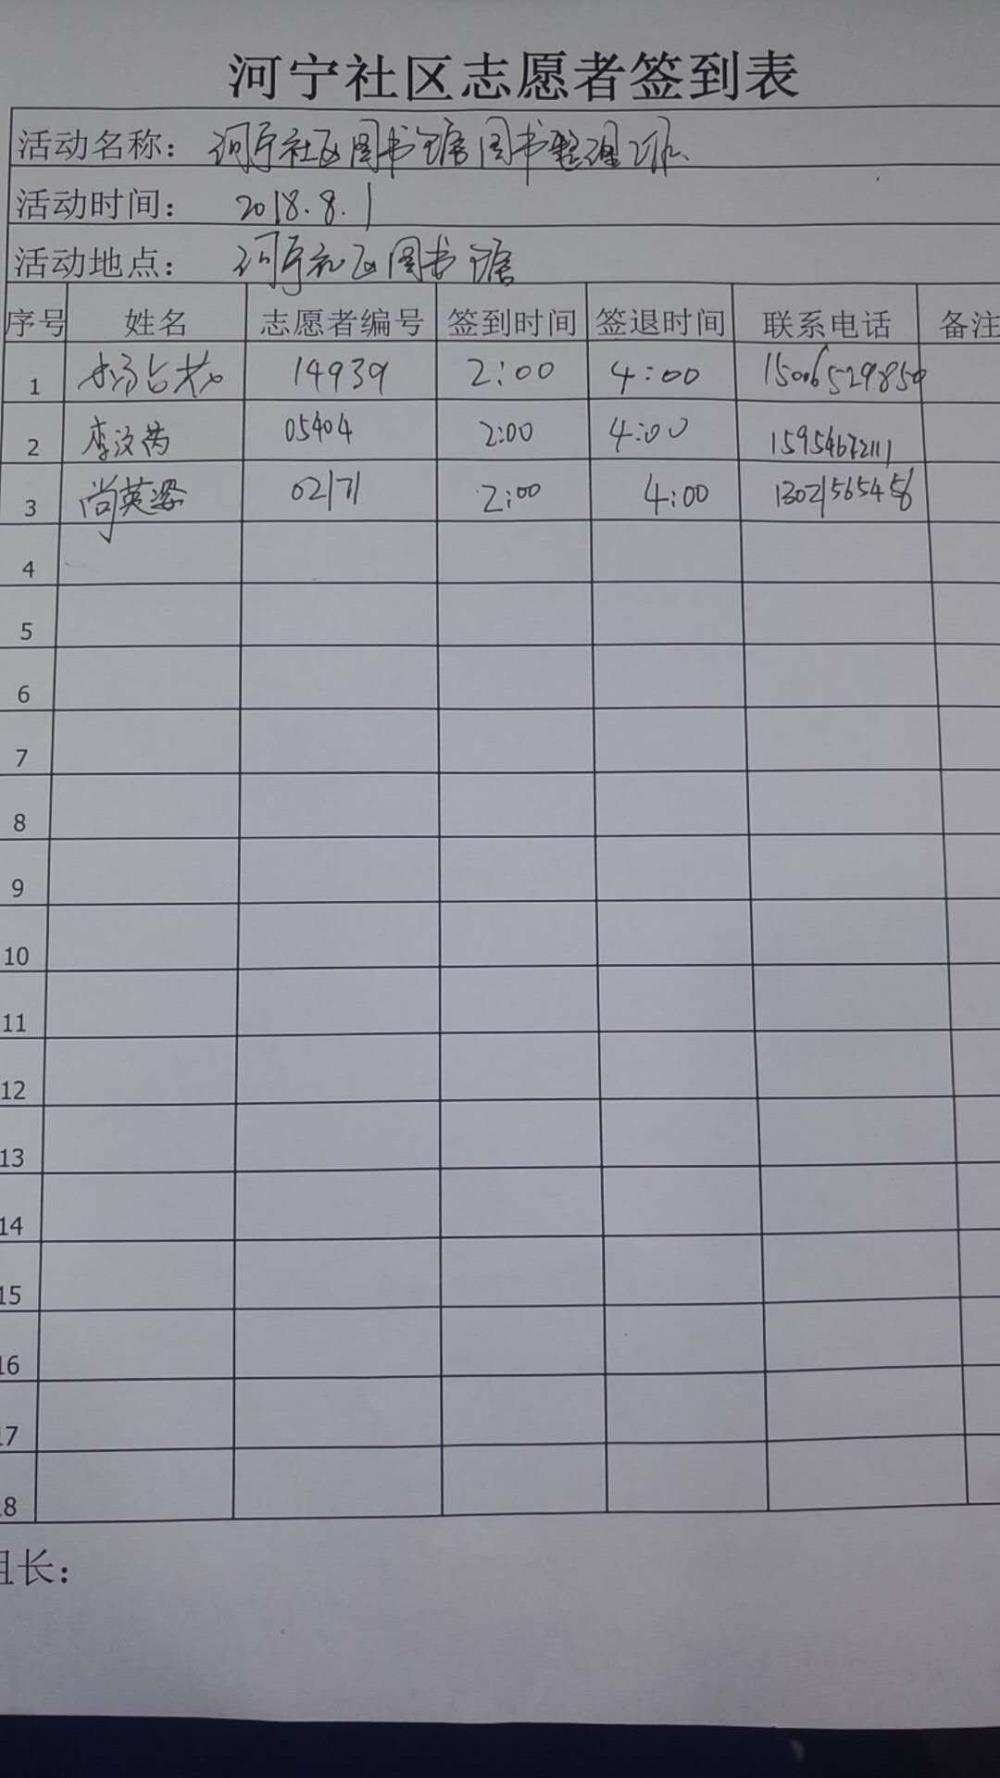 河宁社区志愿者签到表
活动名称： 河宁社区图书馆图书整理工作
活动时间： 2018.8.1
活动地点： 河宁社区图书馆
序号 姓名 志愿者编号 签到时间 签退时间 联系电话 备注
1 14939 2:00 4:00 15006529850
2 李汶芮 05404 2:00 4:00 15954672111
3 尚英 02171 2:00 4:00
4
5
6
7
8
9
10
11
12
13
14
15
16
17
18
组长：